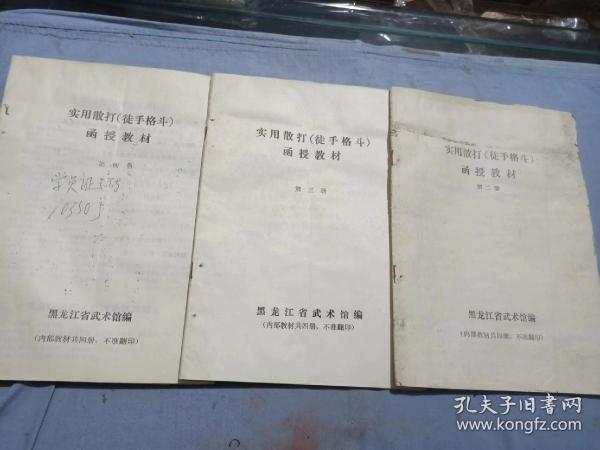 实用散打(徒手格斗)
函授教材
第四册
学员证号
10350号
黑龙江省武术馆编
(内部教材共四册,不准翻印)
实用散打(徒手格斗)
函授教材
第三册
黑龙江省武术馆编
(内部教材共四册,不准翻印)
实用散打(徒手格斗)
函授教材
第二册
黑龙江省武术馆编
(内部教材共四册,不准翻印)
孔夫子旧书网
www.kongfz.com